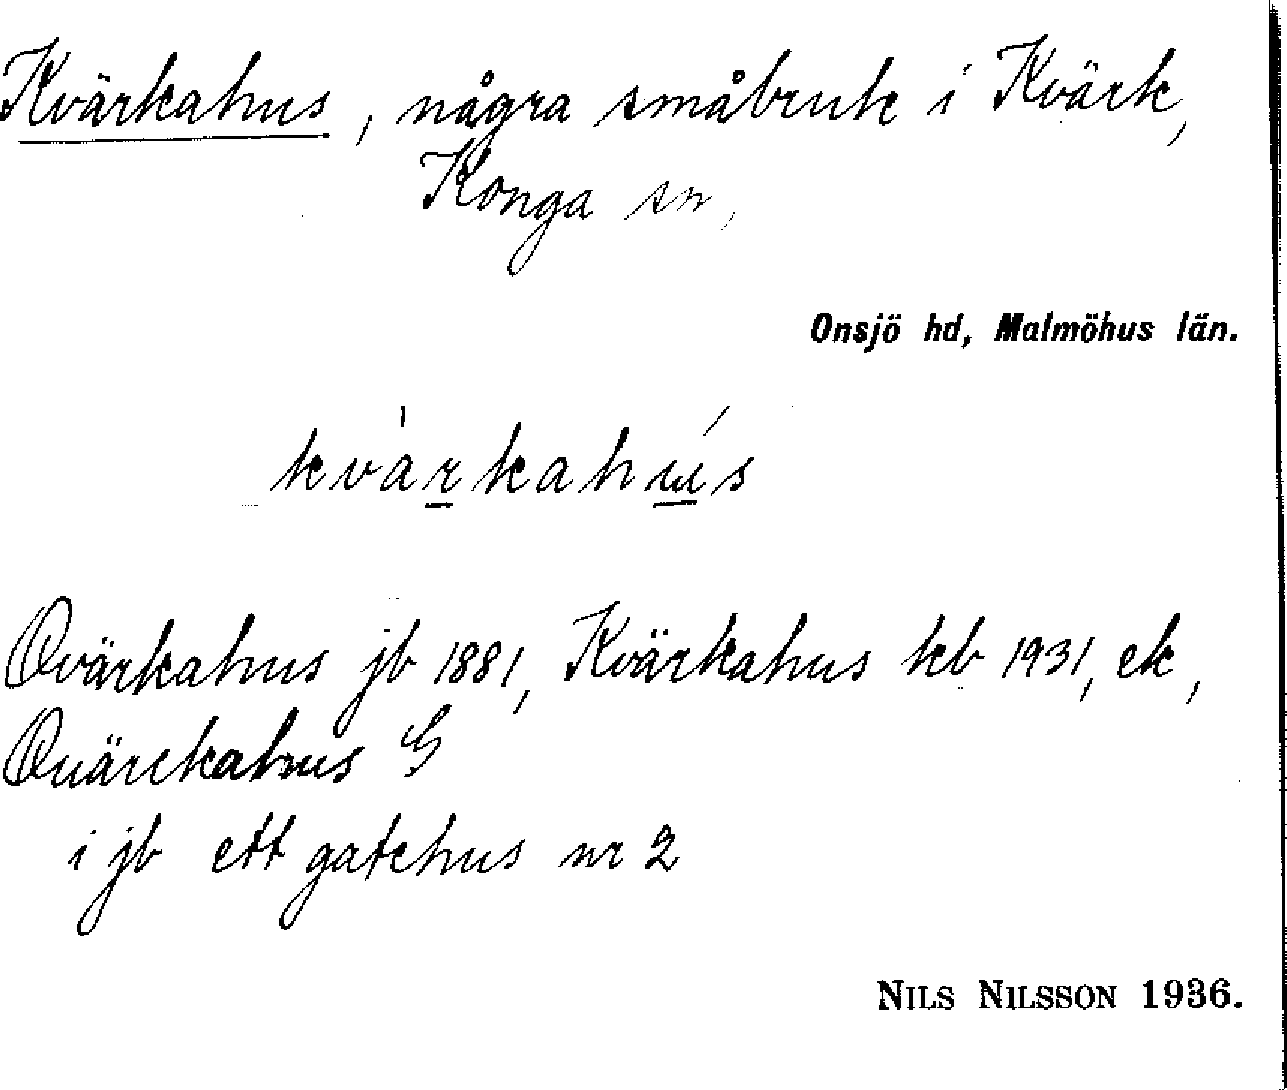 Kvärkahus, några småbruk i Kvärk,
Konga sn,
Onsjö hd, Malmöhus län.
kvàrkahús
Qvärkahus jb 1881, Kvärkahus kb 1931, ek,
Quärckahus G
i jb ett gatehus nr 2
NILS NILSSON 1936.